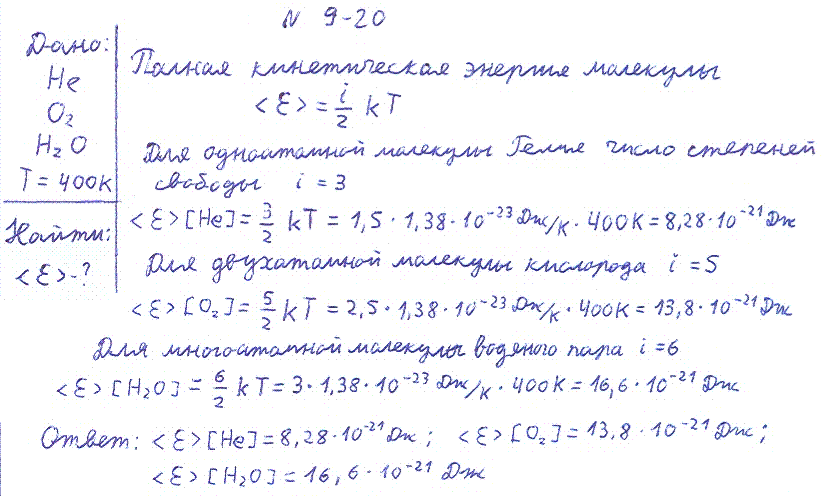 N 9-20
Дано:
He
O₂
H₂O
T = 400К
Найти:
<ε>-?
Полная кинетическая энергия молекулы
<ε> = i/2 kT
Для одноатомной молекулы Гелия число степеней
свободы i = 3
<ε>[He] = 3/2 kT = 1,5 · 1,38 · 10⁻²³ Дж/К · 400К = 8,28 · 10⁻²¹ Дж
Для двухатомной молекулы кислорода i = 5
<ε>[O₂] = 5/2 kT = 2,5 · 1,38 · 10⁻²³ Дж/К · 400К = 13,8 · 10⁻²¹ Дж
Для многоатомной молекулы водяного пара i = 6
<ε>[H₂O] = 6/2 kT = 3 · 1,38 · 10⁻²³ Дж/К · 400К = 16,6 · 10⁻²¹ Дж
Ответ: <ε>[He] = 8,28 · 10⁻²¹ Дж; <ε>[O₂] = 13,8 · 10⁻²¹ Дж;
<ε>[H₂O] = 16,6 · 10⁻²¹ Дж